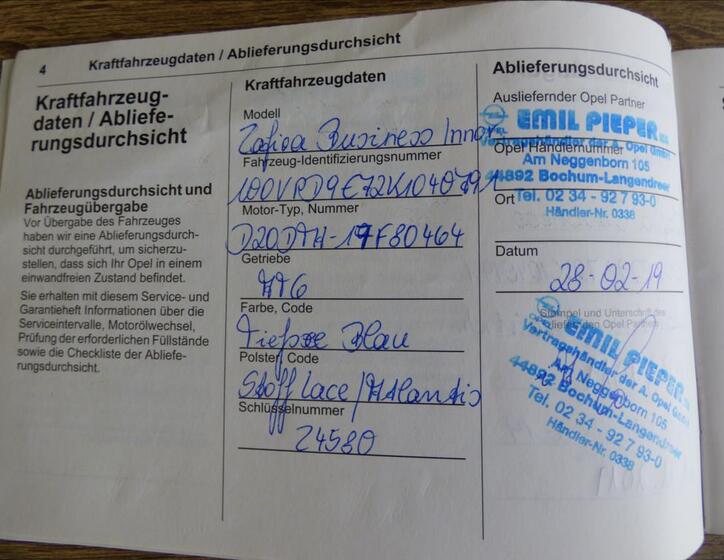 4
Kraftfahrzeugdaten / Ablieferungsdurchsicht
Kraftfahrzeug-
daten / Abliefe-
rungsdurchsicht
Ablieferungsdurchsicht und
Fahrzeugübergabe
Vor Übergabe des Fahrzeuges
haben wir eine Ablieferungsdurch-
sicht durchgeführt, um sicherzu-
stellen, dass sich Ihr Opel in einem
einwandfreien Zustand befindet.
Sie erhalten mit diesem Service- und
Garantieheft Informationen über die
Serviceintervalle, Motorölwechsel,
Prüfung der erforderlichen Füllstände
sowie die Checkliste der Abliefe-
rungsdurchsicht.
Kraftfahrzeugdaten
Modell
Zafira Business Innov
Fahrzeug-Identifizierungsnummer
Motor-Typ, Nummer
Getriebe
Farbe, Code
Tiefsee Blau
Polster, Code
Stoff Lace / Atlantis
Schlüsselnummer
Z4580
Ablieferungsdurchsicht
Ausliefernder Opel Partner
EMIL PIEPER
Vertragshändler der A. Opel GmbH
Opel Händlernummer
Am Neggenborn 105
44892 Bochum-Langendreer
Ort
Tel. 02 34 - 92 7 93-0
Händler-Nr. 0338
Datum
28-02-19
Stempel und Unterschrift des
EMIL PIEPER
Vertragshändler der A. Opel GmbH
Am Neggenborn 105
44892 Bochum-Langendreer
Tel. 02 34 - 92 7 93-0
Händler-Nr. 0338